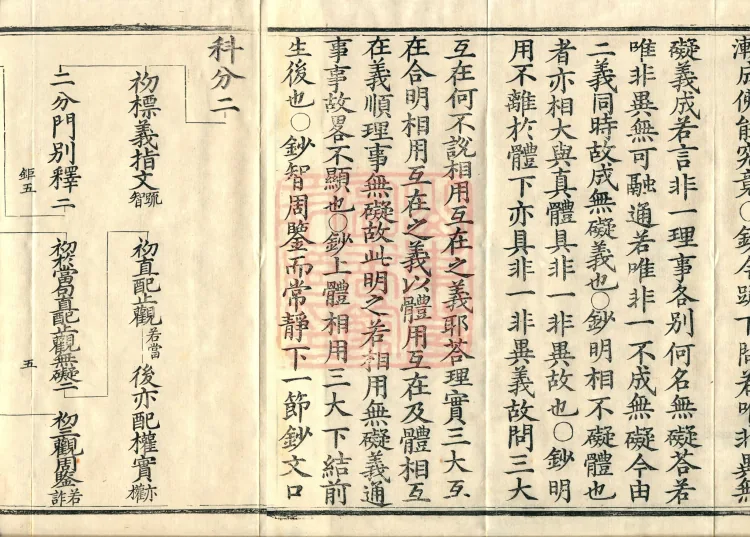 礙義成若言非一理事各別何名無礙荅若
唯非異無可融通若唯非一不成無礙今由
二義同時故成無礙義也〇鈔明相不礙體也
者亦相大與真體具非一非異故也〇鈔明
用不離於體下亦具非一非異義故問三大
互在何不說相用互在之義耶荅理實三大互
在合明相用互在之義以體用互在及體相互
在義順理事無礙故此明之若相用無礙義通
事事故畧不顯也〇鈔上體相用三大下結前
生後也〇鈔智周鑒而常靜下一節鈔文口
科分二
初標義指文䟽智
二分門別釋二
鉅五
初直配止觀若當
後亦配權實亦權
初於當句直配止觀無礙二
五
初三觀周鑒若詐